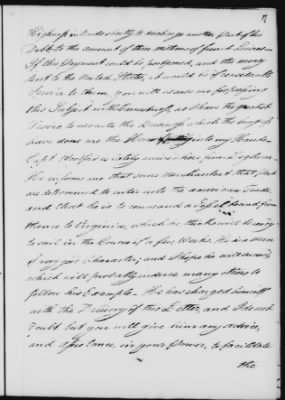 7
Highness is Immediately to discharge another Part of the
Debt to the amount of three millions of french Livres.
If this Payment could be postponed, and the money
lent to the United States, it would be of considerable
Service to them, you will excuse me for papsing
this Subject in this manner, as I have the greatest
Desire to execute the Business which the Congress
have done me the Honor to into my Hands.
Capt. is lately arrived here from
He informs me that some merchants that, that
are determined to enter into the american Trade,
and that he is to command a Ship from
thence to Virginia, which he thinks will be ready
to sail in the Course of a few Weeks. He is a man
of very good Character; and I hope his
which will probably induce many others to
follow his Example. He has charged himself
with the Delivery of this Letter, and I do not
doubt but you will give him any advice,
and assistance, in your Power, to facilitate
the